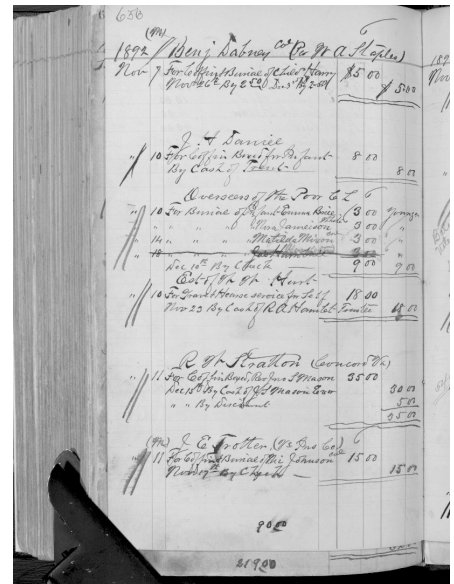 656
1892 Benj Dabney Col (Per W A Staples) 6
Nov 7 For Coffin & Burial of Child Harry $5 00
Nov 26th By 2.50 Dec 3rd By 2.50 $ 5.00
J H Daniel
" 10 For Coffin Boxed for Infant 8 00
By Cash of 8 00
Overseers of the Poor C L 6
" 10 For Burial of Infant Emma Brice 3 00
" " " " Jameson 3 00 "
" 14 " " Matilda Mixon 3 00 "
" 18 " " 3 00
Dec 10th By Check 9 00 9 00
Est of Hurt
" 10 For Grave & Hearse service for Self 18 00
Nov 23 By Cash of R A Hamlet Trustee 18 00
R W Stratton (Concord Va)
" 11 For Coffin Boxed, Rev Jno S Mason 35 00
Dec 15th By Cash of Mason 30 00
" " By Discount 5 00
35 00
J E Trotter, (Va Ins Co) 6
" 11 For Coffin & Burial of Vic Johnson Col 15 00
Nov 17th By Check 15 00
90 00
219 00